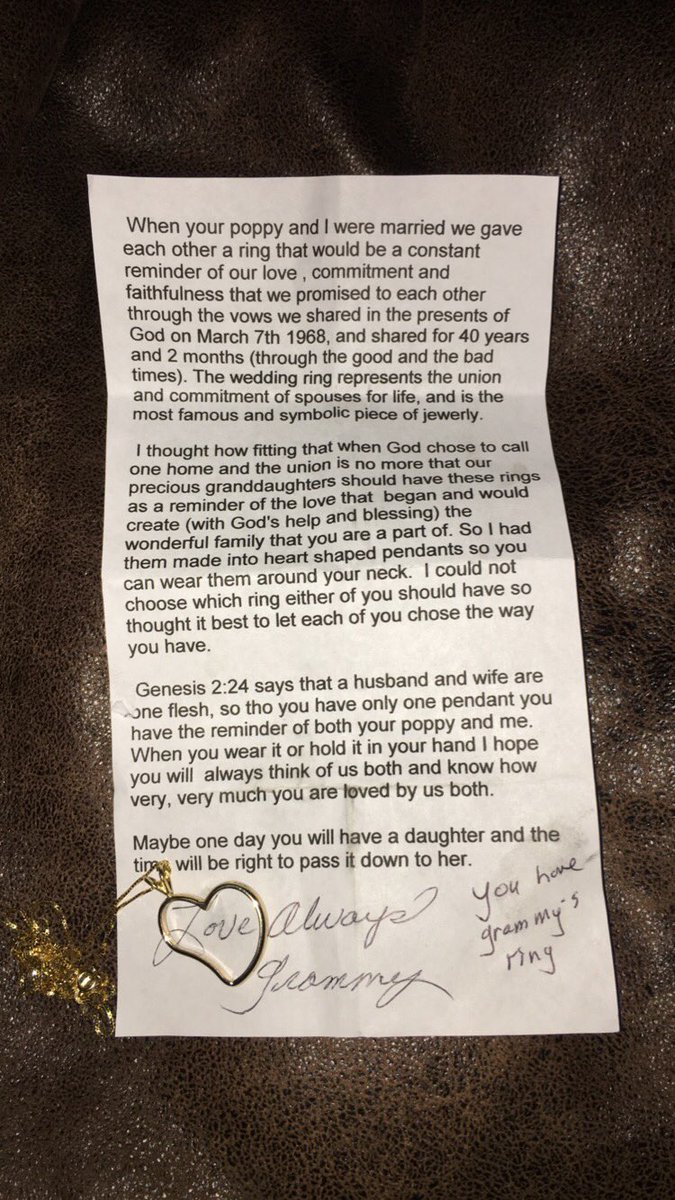 When your poppy and I were married we gave
each other a ring that would be a constant
reminder of our love , commitment and
faithfulness that we promised to each other
through the vows we shared in the presents of
God on March 7th 1968, and shared for 40 years
and 2 months (through the good and the bad
times). The wedding ring represents the union
and commitment of spouses for life, and is the
most famous and symbolic piece of jewerly.
I thought how fitting that when God chose to call
one home and the union is no more that our
precious granddaughters should have these rings
as a reminder of the love that began and would
create (with God's help and blessing) the
wonderful family that you are a part of. So I had
them made into heart shaped pendants so you
can wear them around your neck. I could not
choose which ring either of you should have so
thought it best to let each of you chose the way
you have.
Genesis 2:24 says that a husband and wife are
one flesh, so tho you have only one pendant you
have the reminder of both your poppy and me.
When you wear it or hold it in your hand I hope
you will always think of us both and know how
very, very much you are loved by us both.
Maybe one day you will have a daughter and the
time will be right to pass it down to her.
Love Always
Grammy
you have
grammy's
ring